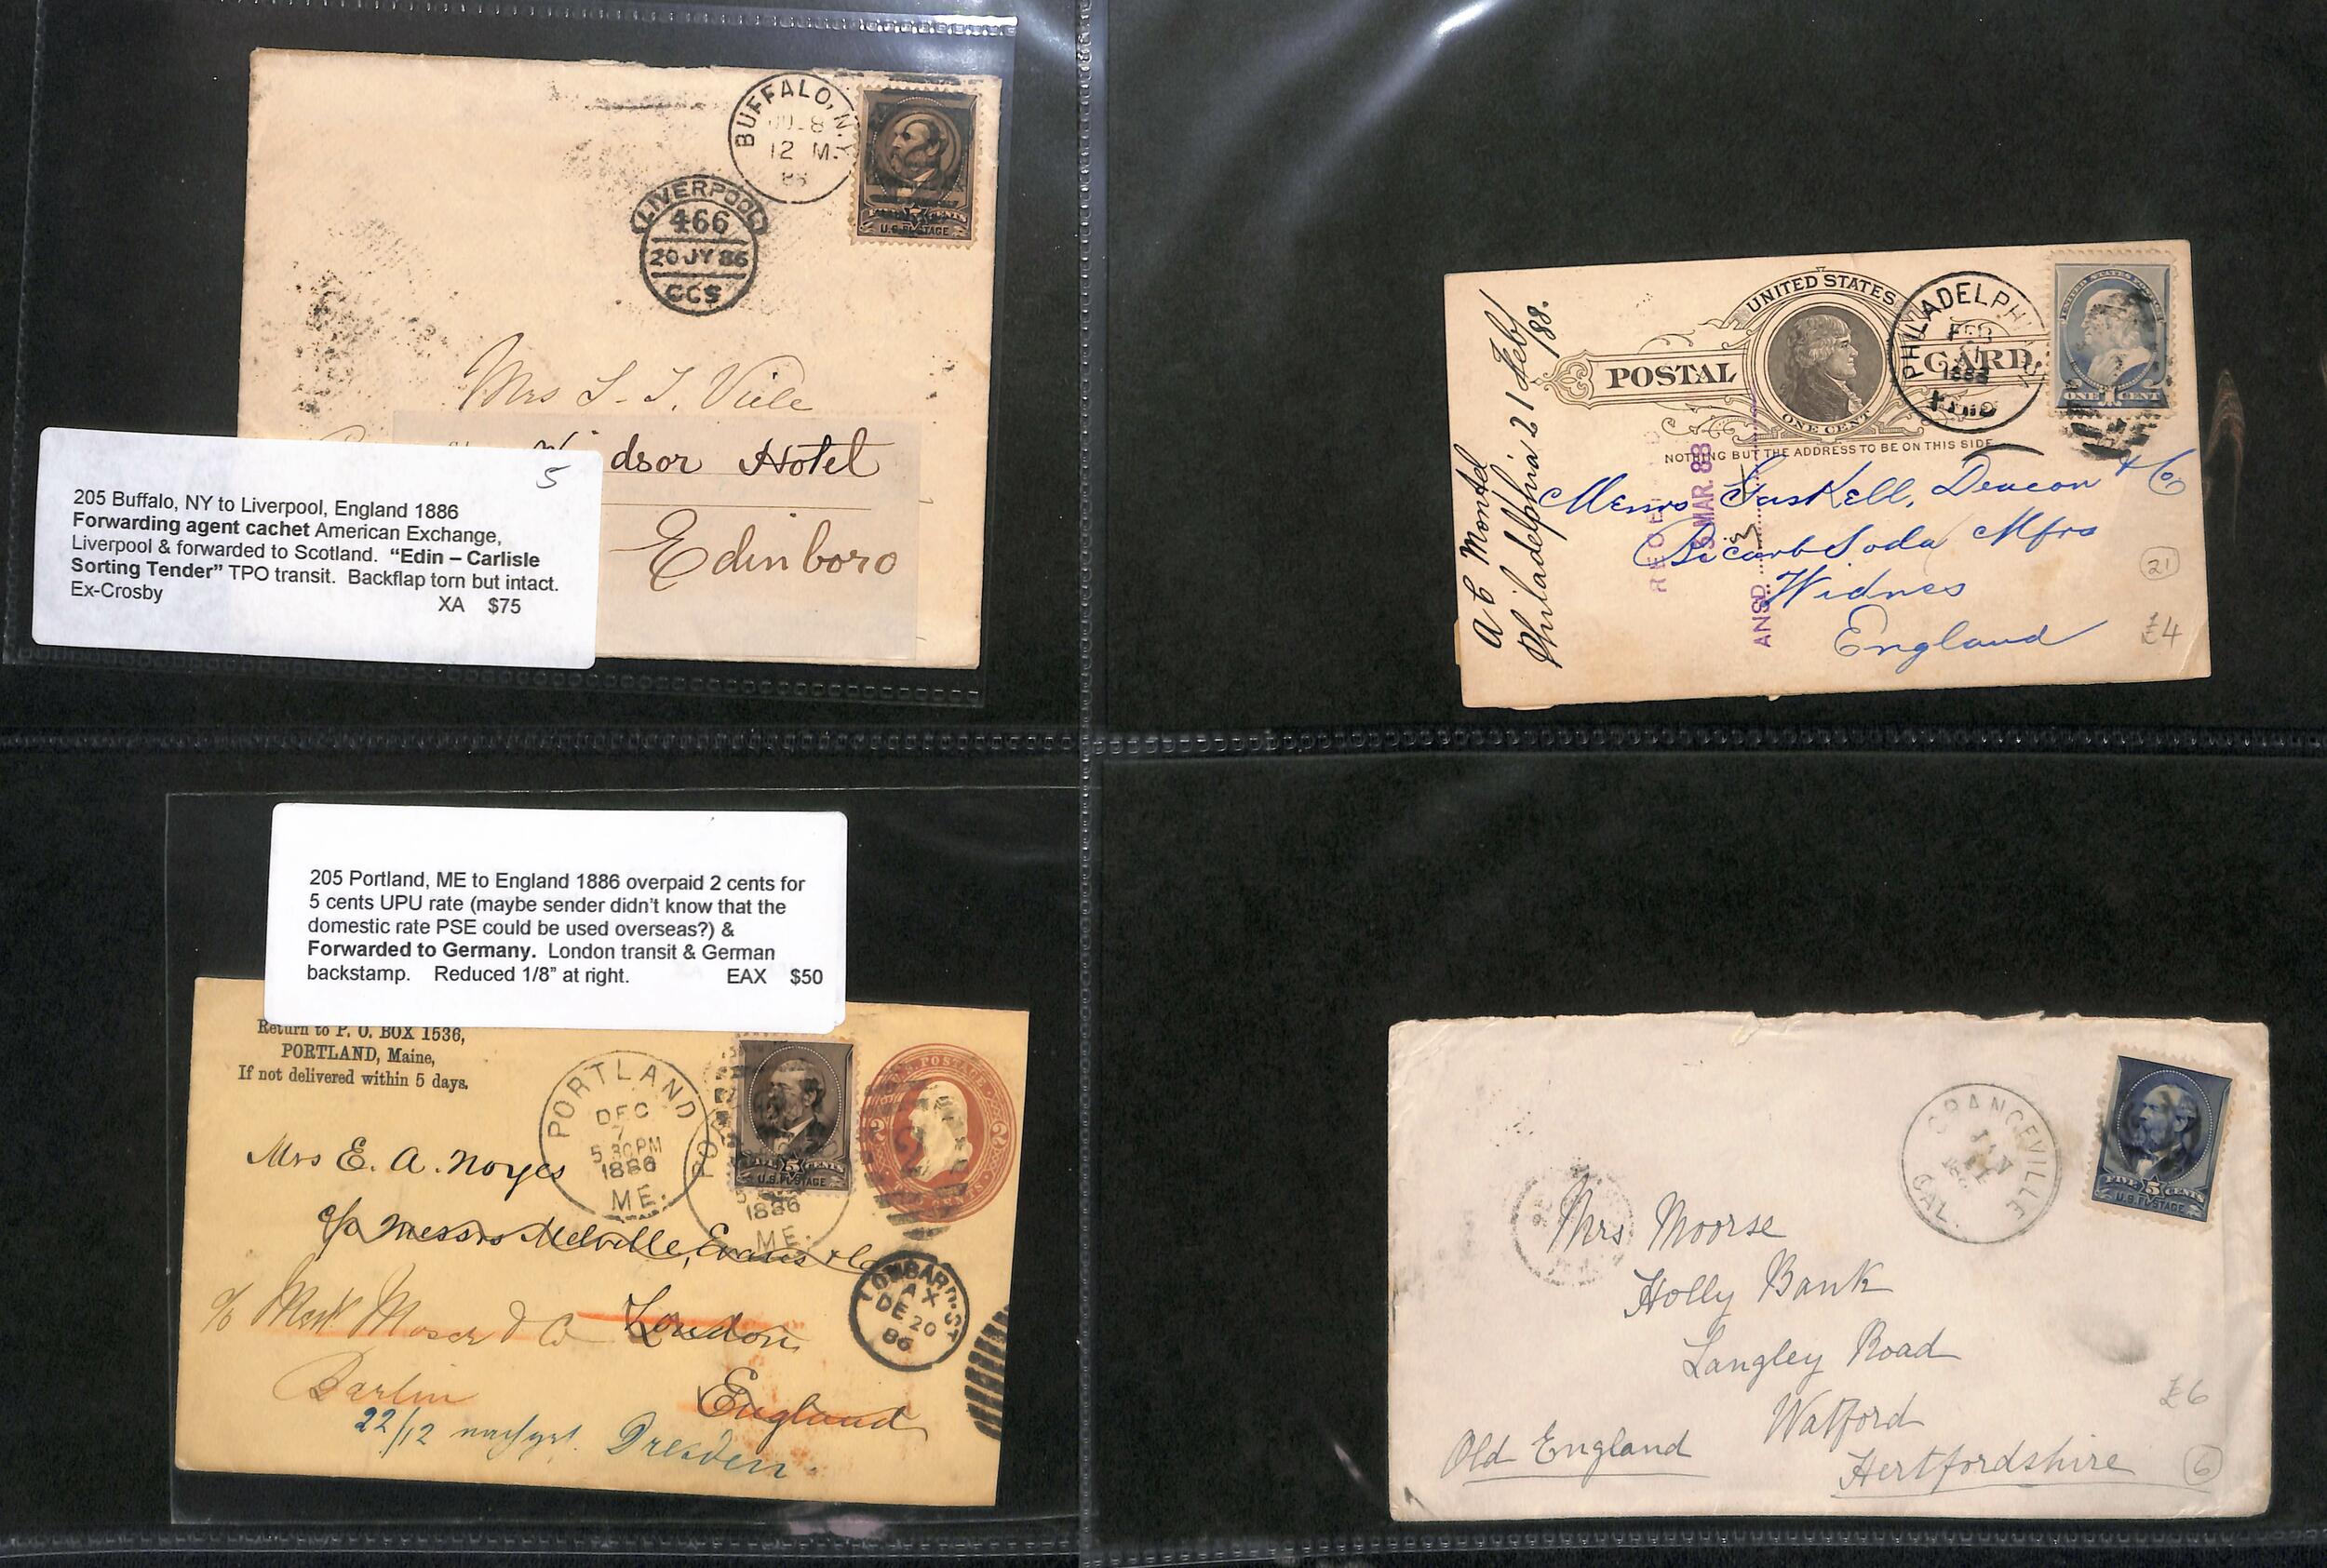 BUFFALO, N.Y.
JUL 8
12 M.
86
FIVE 5 CENTS
U.S. POSTAGE
LIVERPOOL
466
20 JY 86
CCS
Mrs S. T. Viele
Windsor Hotel
Edinboro
5
205 Buffalo, NY to Liverpool, England 1886
Forwarding agent cachet American Exchange,
Liverpool & forwarded to Scotland. “Edin – Carlisle
Sorting Tender” TPO transit. Backflap torn but intact.
Ex-Crosby
XA $75
A C Montel
Philadelphia 21 Feb/88.
UNITED STATES
POSTAL CARD
ONE CENT
NOTHING BUT THE ADDRESS TO BE ON THIS SIDE
PHILADELPHIA
FEB
21
1888
ONE 1 CENT
3 MAR. 88
ANSD.
Messrs Gaskell, Deacon & Co
Bicarb Soda Mfrs
Widnes
England
21
£4
205 Portland, ME to England 1886 overpaid 2 cents for
5 cents UPU rate (maybe sender didn’t know that the
domestic rate PSE could be used overseas?) &
Forwarded to Germany. London transit & German
backstamp. Reduced 1/8” at right.
EAX $50
Return to P. O. BOX 1536,
PORTLAND, Maine,
If not delivered within 5 days.
PORTLAND
DEC
7
5 30 PM
1886
ME.
1886
ME.
FIVE 5 CENTS
U.S. POSTAGE
Mrs E. A. Noyes
c/o Messrs Melville, Evans & Co
London
England
LOMBARD. ST
AX
DE 20
86
c/o Moser & Co
Berlin
22/12 Dresden
ORANGEVILLE
JAN
CAL.
FIVE 5 CENTS
U.S. POSTAGE
Mrs Moorse
Holly Bank
Langley Road
Watford
Hertfordshire
Old England
£6
6